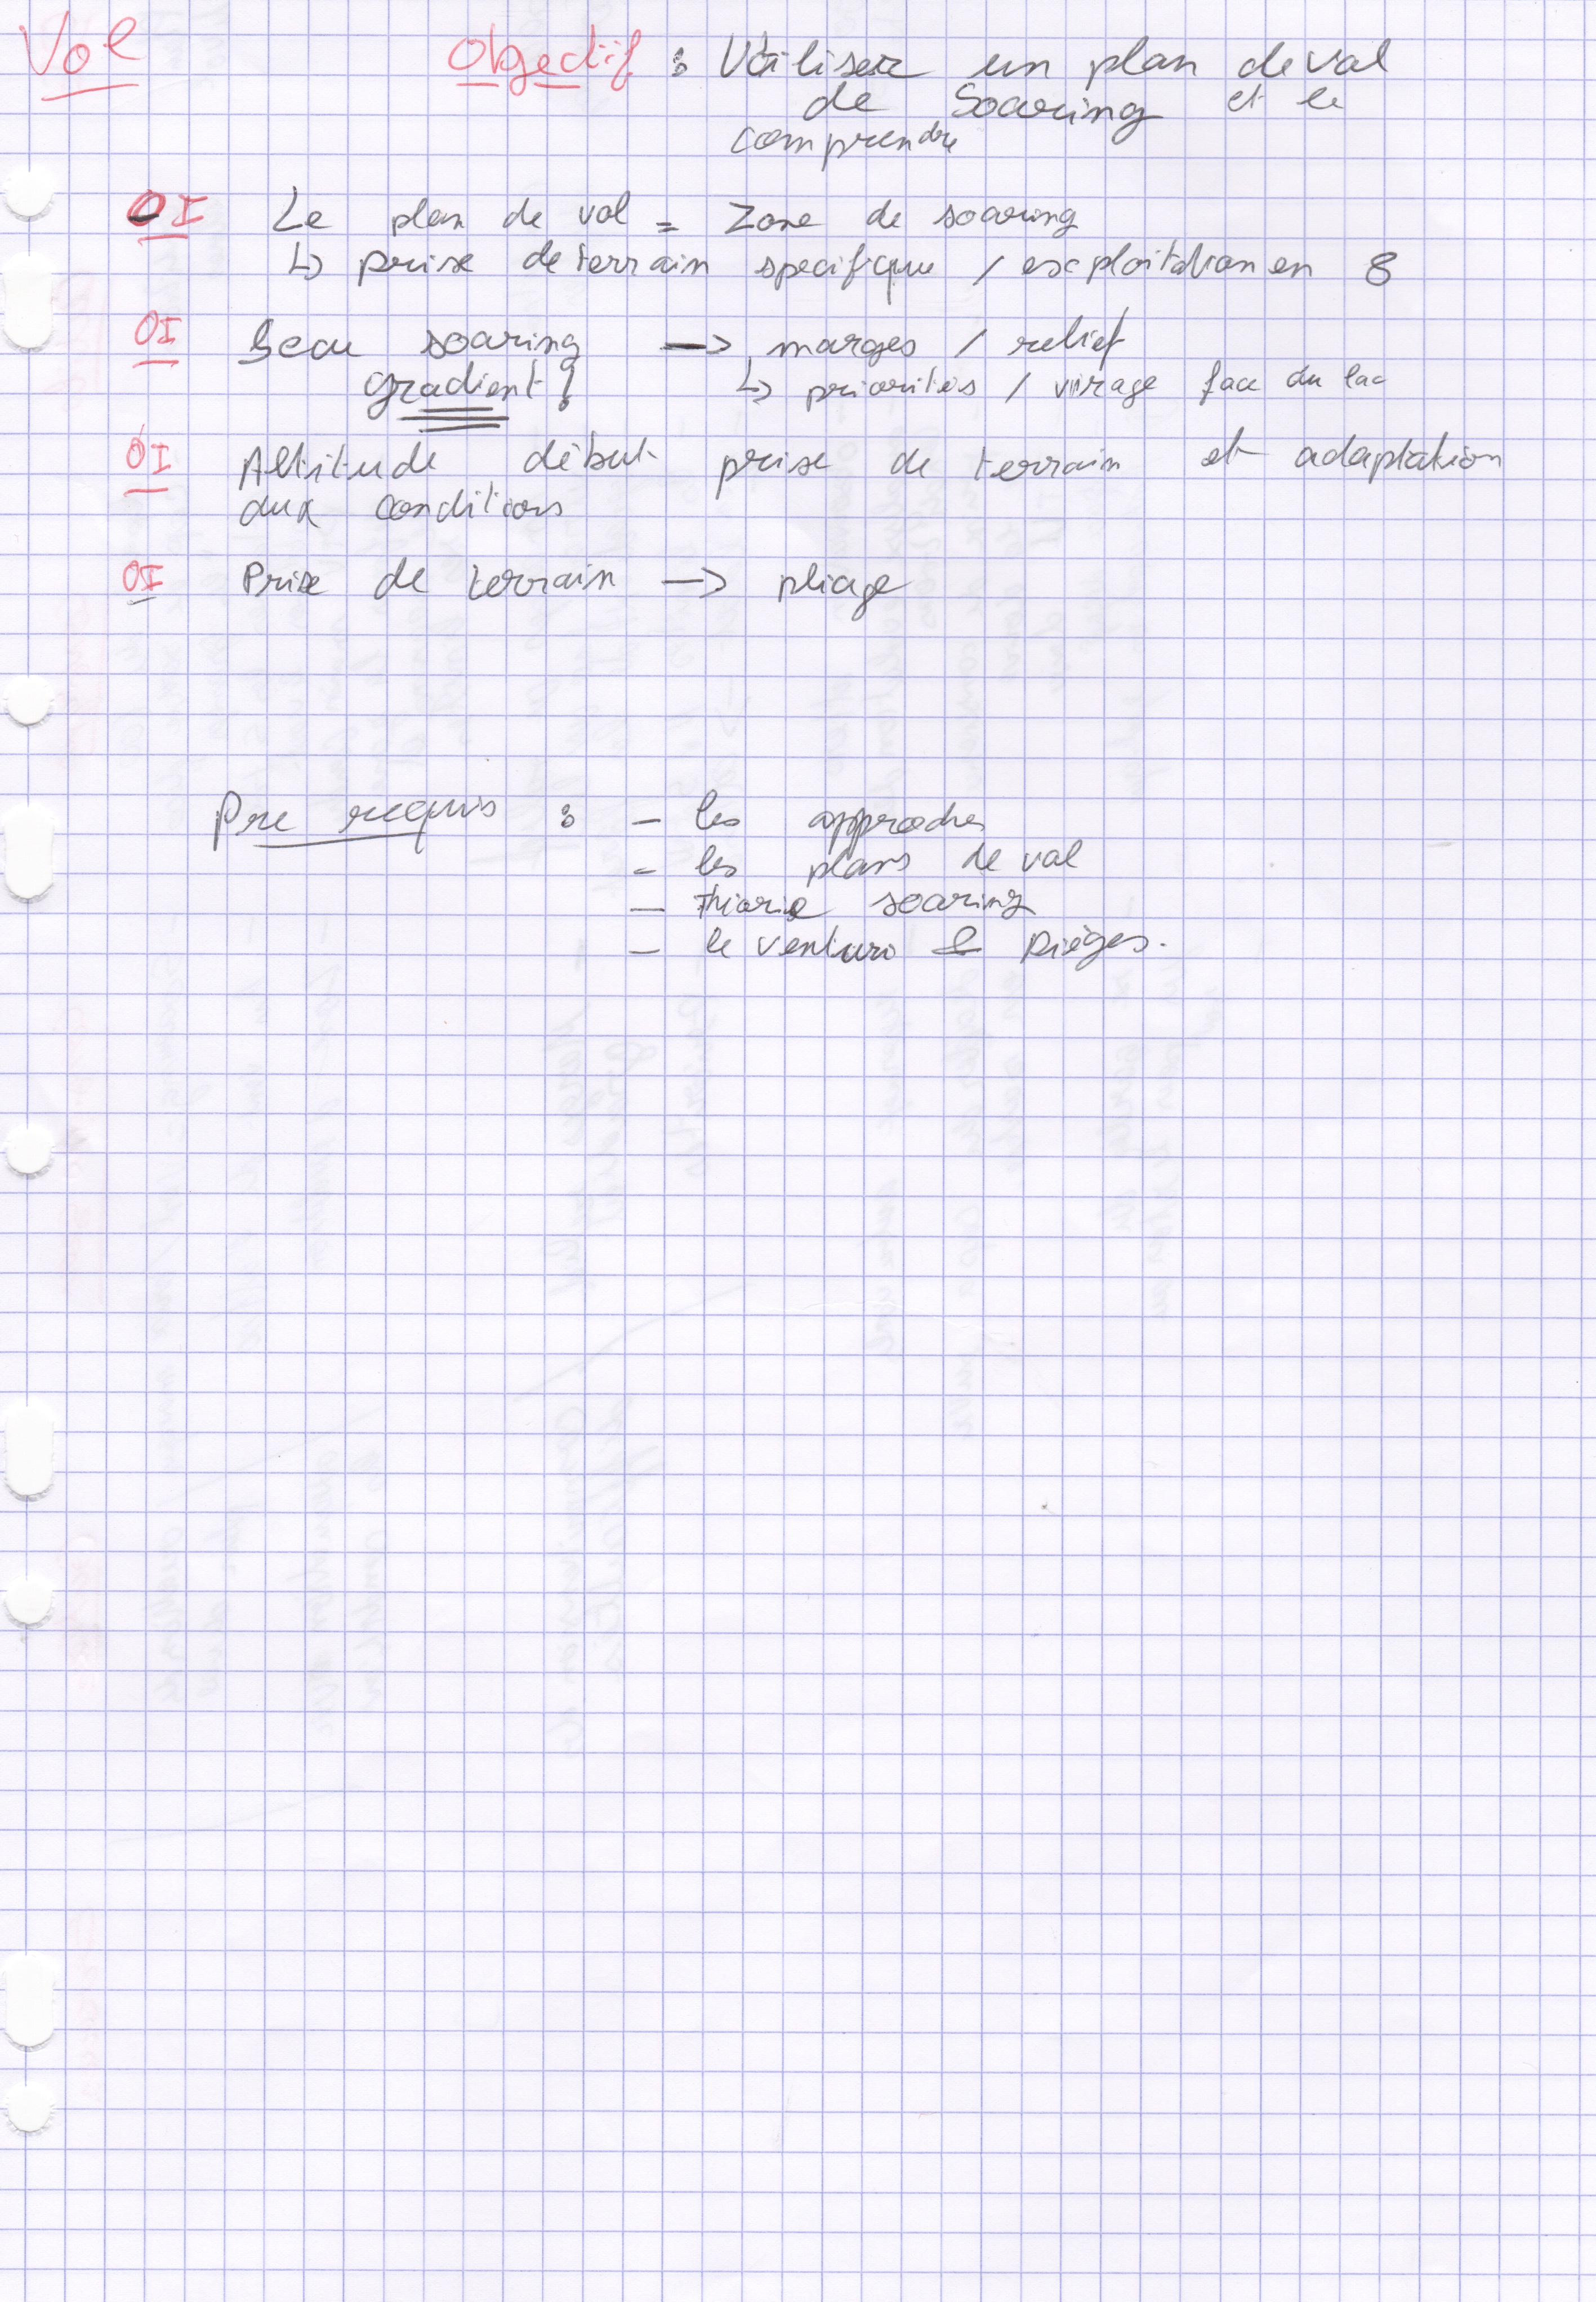 Vol
Objectif : Utiliser un plan de vol
de Soaring et le
comprendre
OI Le plan de vol = Zone de soaring
↳ prise de terrain specifique / exploitation en 8
OI Beau soaring → marges / relief
gradient ! ↳ priorités / virage face au lac
OI Altitude début prise de terrain et adaptation
aux conditions
OI Prise de terrain → pliage
Pre requis : - les approches
- les plans de vol
- théorie soaring
- le venturi & pièges.